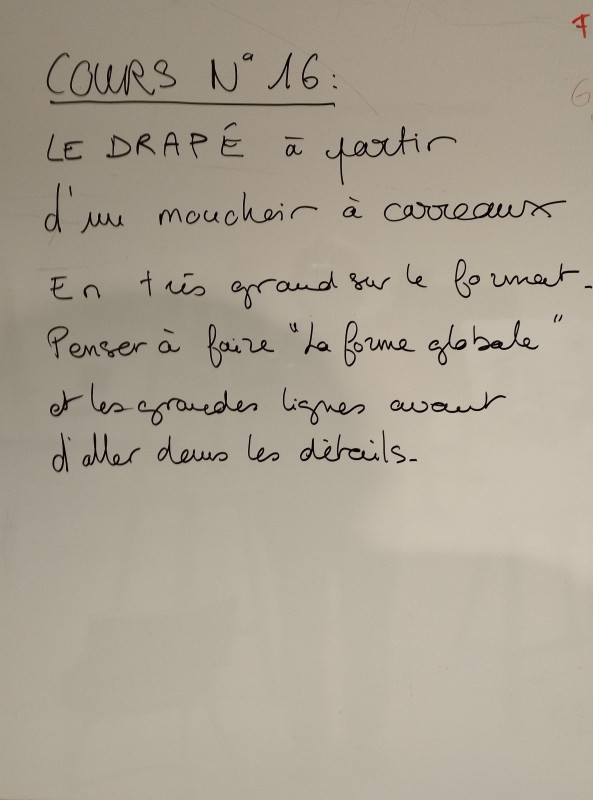 COURS N° 16:
LE DRAPÉ à partir
d'un mouchoir à carreaux
En très grand sur le format.
Penser à faire "La forme globale"
et les grandes lignes avant
d'aller dans les détails.